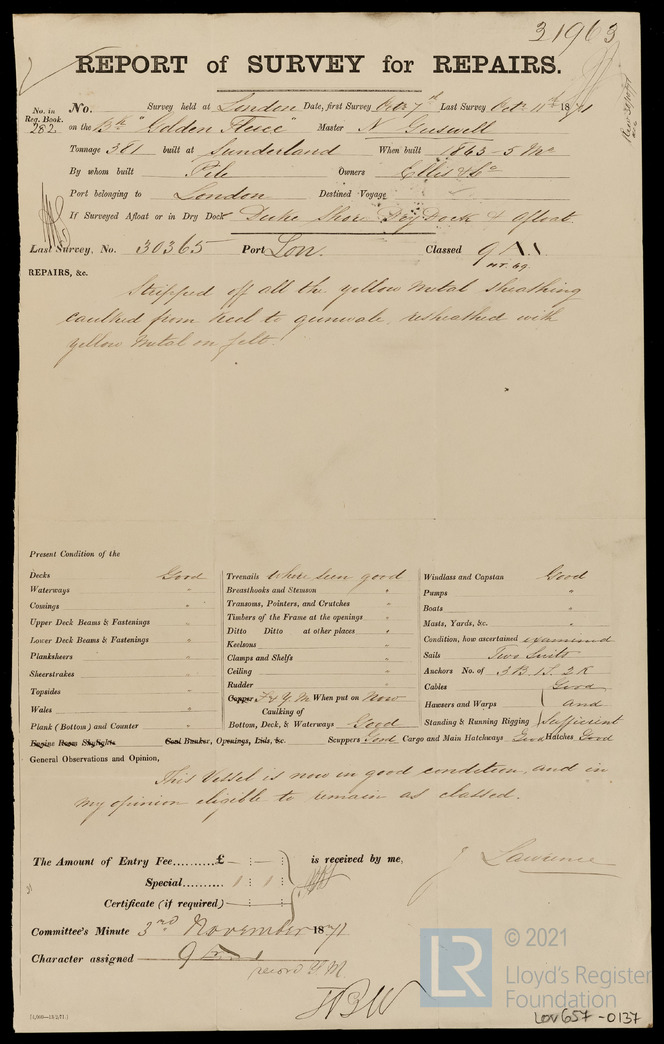 31963
REPORT of SURVEY for REPAIRS.
No. in Reg. Book. 282
No. Survey held at London Date, first Survey Octr 7th Last Survey Octr 11th 1871
on the Bk "Golden Fleece" Master N Guswell
Tonnage 381 built at Sunderland When built 1863-5 Mo
By whom built Pile Owners Ellis & Co
Port belonging to London Destined Voyage
If Surveyed Afloat or in Dry Dock Duke Shore Dry Dock & Afloat
Last Survey, No. 30365 Port Lon. Classed 9 A.1.
REPAIRS, &c.
Stripped off all the yellow metal sheathing
caulked from keel to gunwale, resheathed with
yellow metal on felt.
Present Condition of the
Decks Good
Waterways "
Comings "
Upper Deck Beams & Fastenings "
Lower Deck Beams & Fastenings "
Planksheers "
Sheerstrakes "
Topsides "
Wales "
Plank (Bottom) and Counter "
Engine Room Skylights Coal Bunker, Openings, Lids, &c.
Treenails where seen good
Breasthooks and Stemson "
Transoms, Pointers, and Crutches "
Timbers of the Frame at the openings "
Ditto Ditto at other places "
Keelsons "
Clamps and Shelfs "
Ceiling "
Rudder "
Copper F & Y.M. When put on Now
Caulking of
Bottom, Deck, & Waterways Good
Windlass and Capstan Good
Pumps "
Boats "
Masts, Yards, &c. "
Condition, how ascertained examined
Sails Two Suits
Anchors No. of 3B. 1S. 2K
Cables Good
Hawsers and Warps and
Standing & Running Rigging Sufficient
Scuppers Good Cargo and Main Hatchways Good Hatches Good
General Observations and Opinion,
This Vessel is now in good condition, and in
my opinion eligible to remain as classed.
The Amount of Entry Fee..........£ - : - : is received by me,
Special......... 1 : 1 :
Certificate (if required)
J Lawrence
Committee's Minute 3rd November 1871
Character assigned 9 A 1
record Y.M.
(4,000—18/2/71.)
LR © 2021
Lloyd's Register
Foundation
LON657-0137